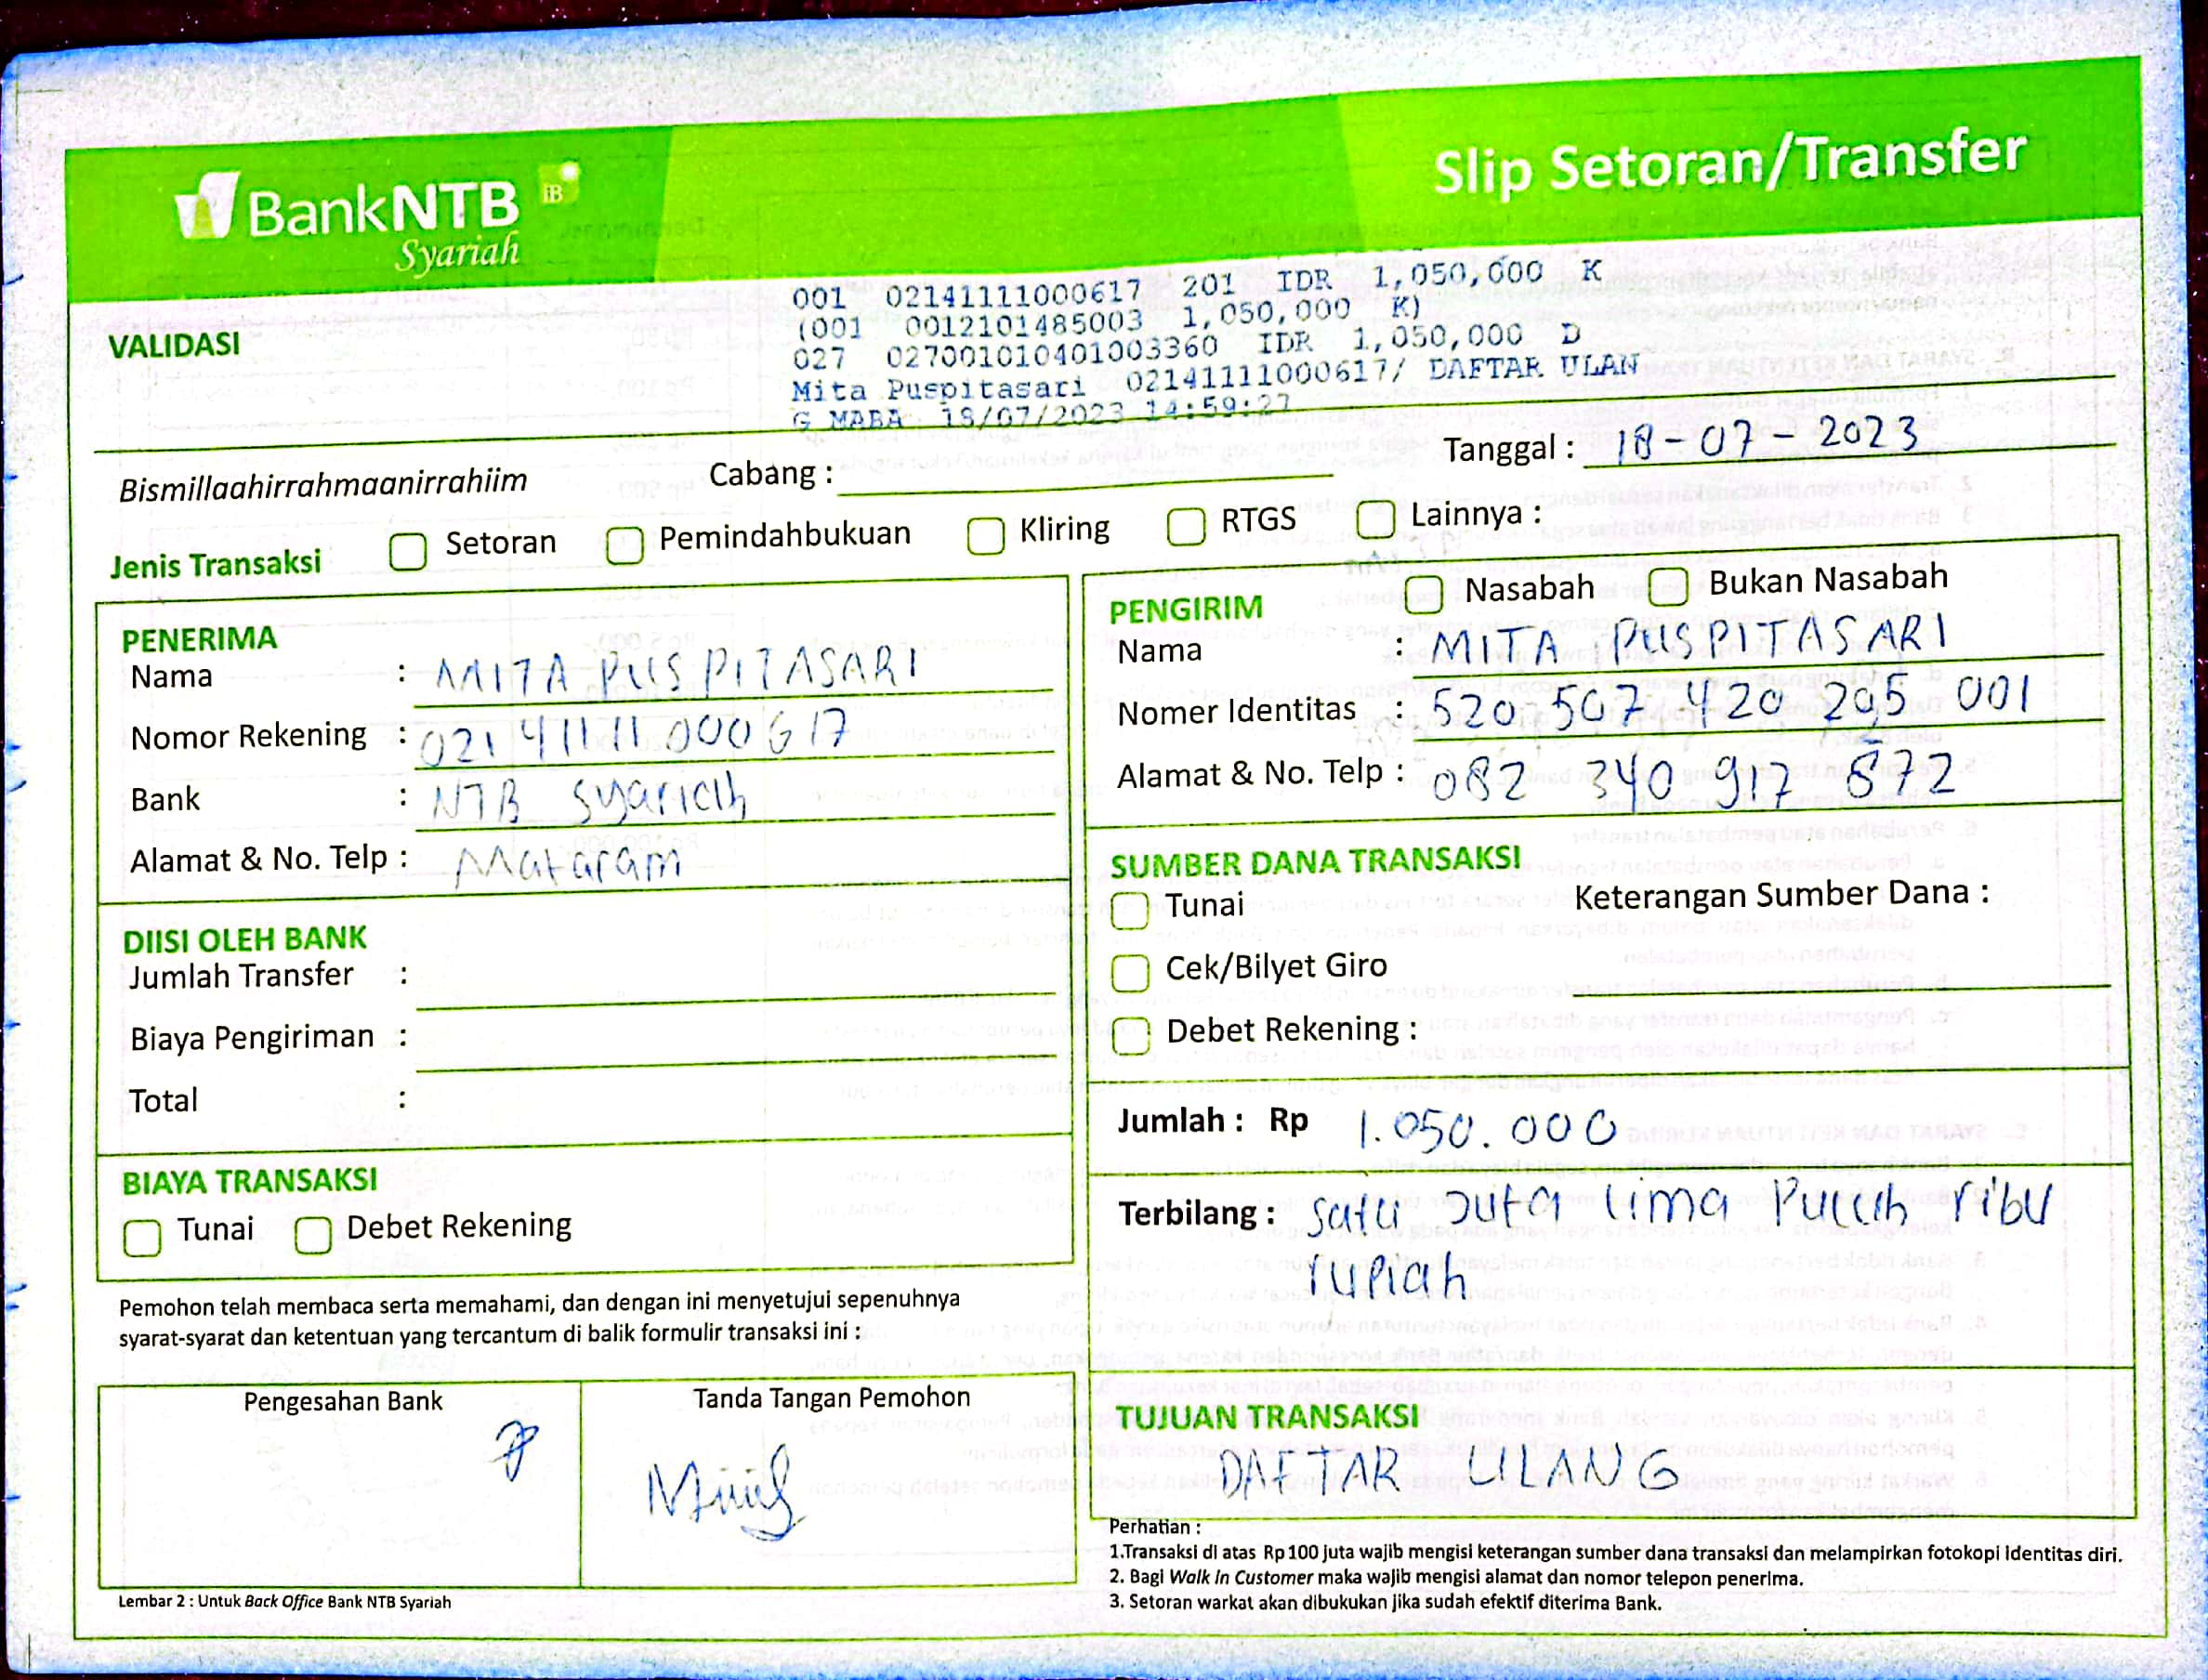 BankNTB iB
Syariah
Slip Setoran/Transfer
VALIDASI
001 02141111000617 201 IDR 1,050,000 K
(001 0012101485003 1,050,000 K)
027 027001010401003360 IDR 1,050,000 D
Mita Puspitasari 02141111000617/ DAFTAR ULAN
G MABA 18/07/2023 14:59:27
Bismillaahirrahmaanirrahiim
Cabang :
Tanggal : 18-07-2023
Jenis Transaksi Setoran Pemindahbukuan Kliring RTGS Lainnya :
PENERIMA
Nama : MITA PUSPITASARI
Nomor Rekening : 02141111000617
Bank : NTB Syariah
Alamat & No. Telp : Mataram
DIISI OLEH BANK
Jumlah Transfer :
Biaya Pengiriman :
Total :
BIAYA TRANSAKSI
Tunai Debet Rekening
Pemohon telah membaca serta memahami, dan dengan ini menyetujui sepenuhnya
syarat-syarat dan ketentuan yang tercantum di balik formulir transaksi ini :
Pengesahan Bank
Tanda Tangan Pemohon
Lembar 2 : Untuk Back Office Bank NTB Syariah
PENGIRIM Nasabah Bukan Nasabah
Nama : MITA PUSPITASARI
Nomer Identitas : 520 507 420 295 001
Alamat & No. Telp : 082 340 917 872
SUMBER DANA TRANSAKSI
Tunai Keterangan Sumber Dana :
Cek/Bilyet Giro
Debet Rekening :
Jumlah : Rp 1.050.000
Terbilang : satu Juta lima Puluh ribu
rupiah
TUJUAN TRANSAKSI
DAFTAR ULANG
Perhatian :
1.Transaksi di atas Rp100 juta wajib mengisi keterangan sumber dana transaksi dan melampirkan fotokopi identitas diri.
2. Bagi Walk In Customer maka wajib mengisi alamat dan nomor telepon penerima.
3. Setoran warkat akan dibukukan jika sudah efektif diterima Bank.